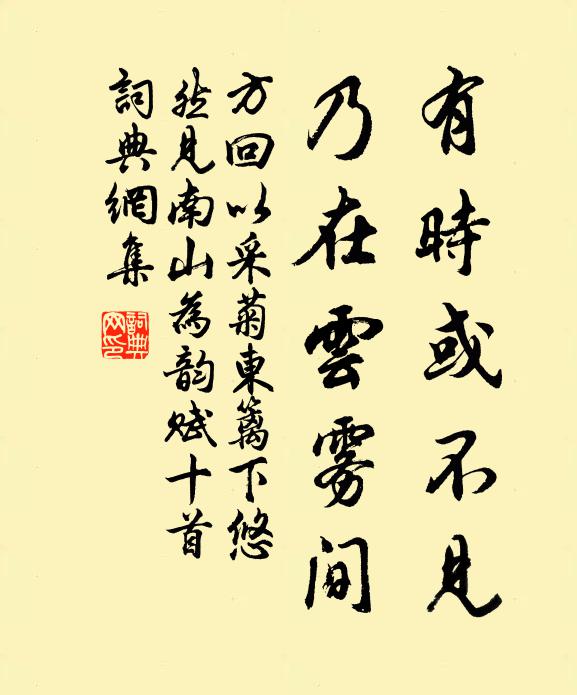 有時或不見
乃在雲雾間
方回以采菊東籬下悠
然見南山為韵赋十首
詞典網集
詞典网印